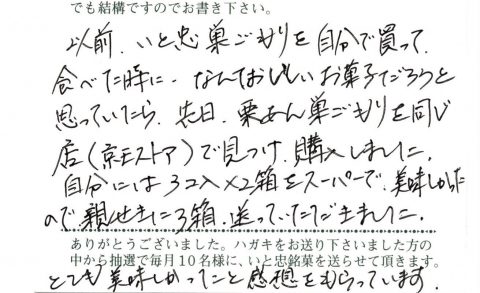 でも結構ですのでお書き下さい。
以前、いと忠巣ごもりを自分で買って、
食べた時に、なんておいしいお菓子だろうと
思っていたら、先日、栗あん巣ごもりを同じ
店(京王ストア)で見つけ、購入しました。
自分には3コ入×2箱をスーパーで、美味しかった
ので親せきに3箱、送っていただきました。
ありがとうございました。ハガキをお送り下さいました方の
中から抽選で毎月10名様に、いと忠銘菓を送らせて頂きます。
とても美味しかったと感想をもらっています。